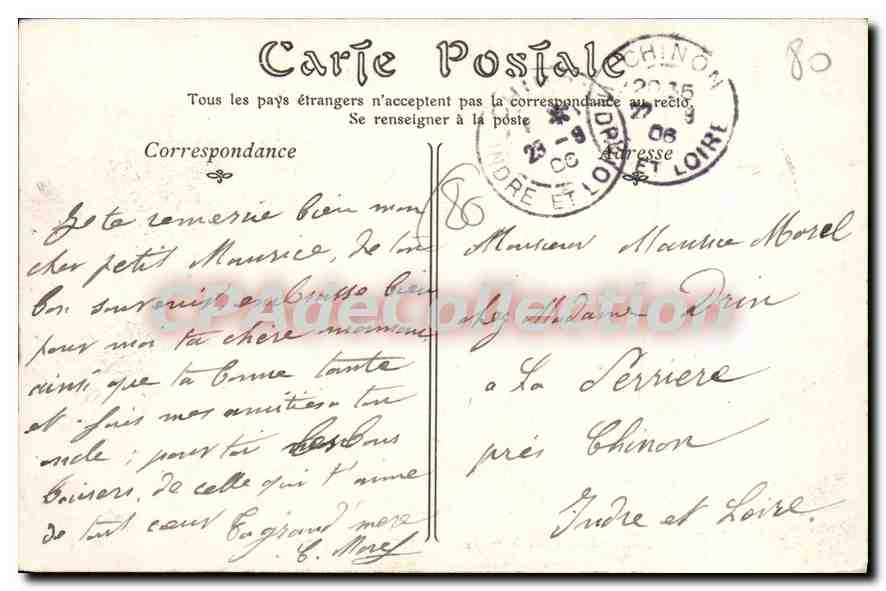 Carte Postale
Tous les pays étrangers n'acceptent pas la correspondance au recto.
Se renseigner à la poste
Correspondance
Adresse
CHINON
23 -9
06
INDRE ET LOIRE
CHINON
20 35
22 9
06
INDRE ET LOIRE
80
80
Je te remercie bien mon
cher petit Maurice, de ton
bon souvenir, embrasse bien
pour moi ta chère maman,
ainsi que ta bonne tante
et fais mes amitiés a ton
oncle; pour toi les bons
baisers, de celle qui t'aime
de tout cœur Ta grand mère
C. Morel
Monsieur Maurice Morel
chez Madame Drin
a La Perrière
près Chinon
Indre et Loire.
CPAdeCollection